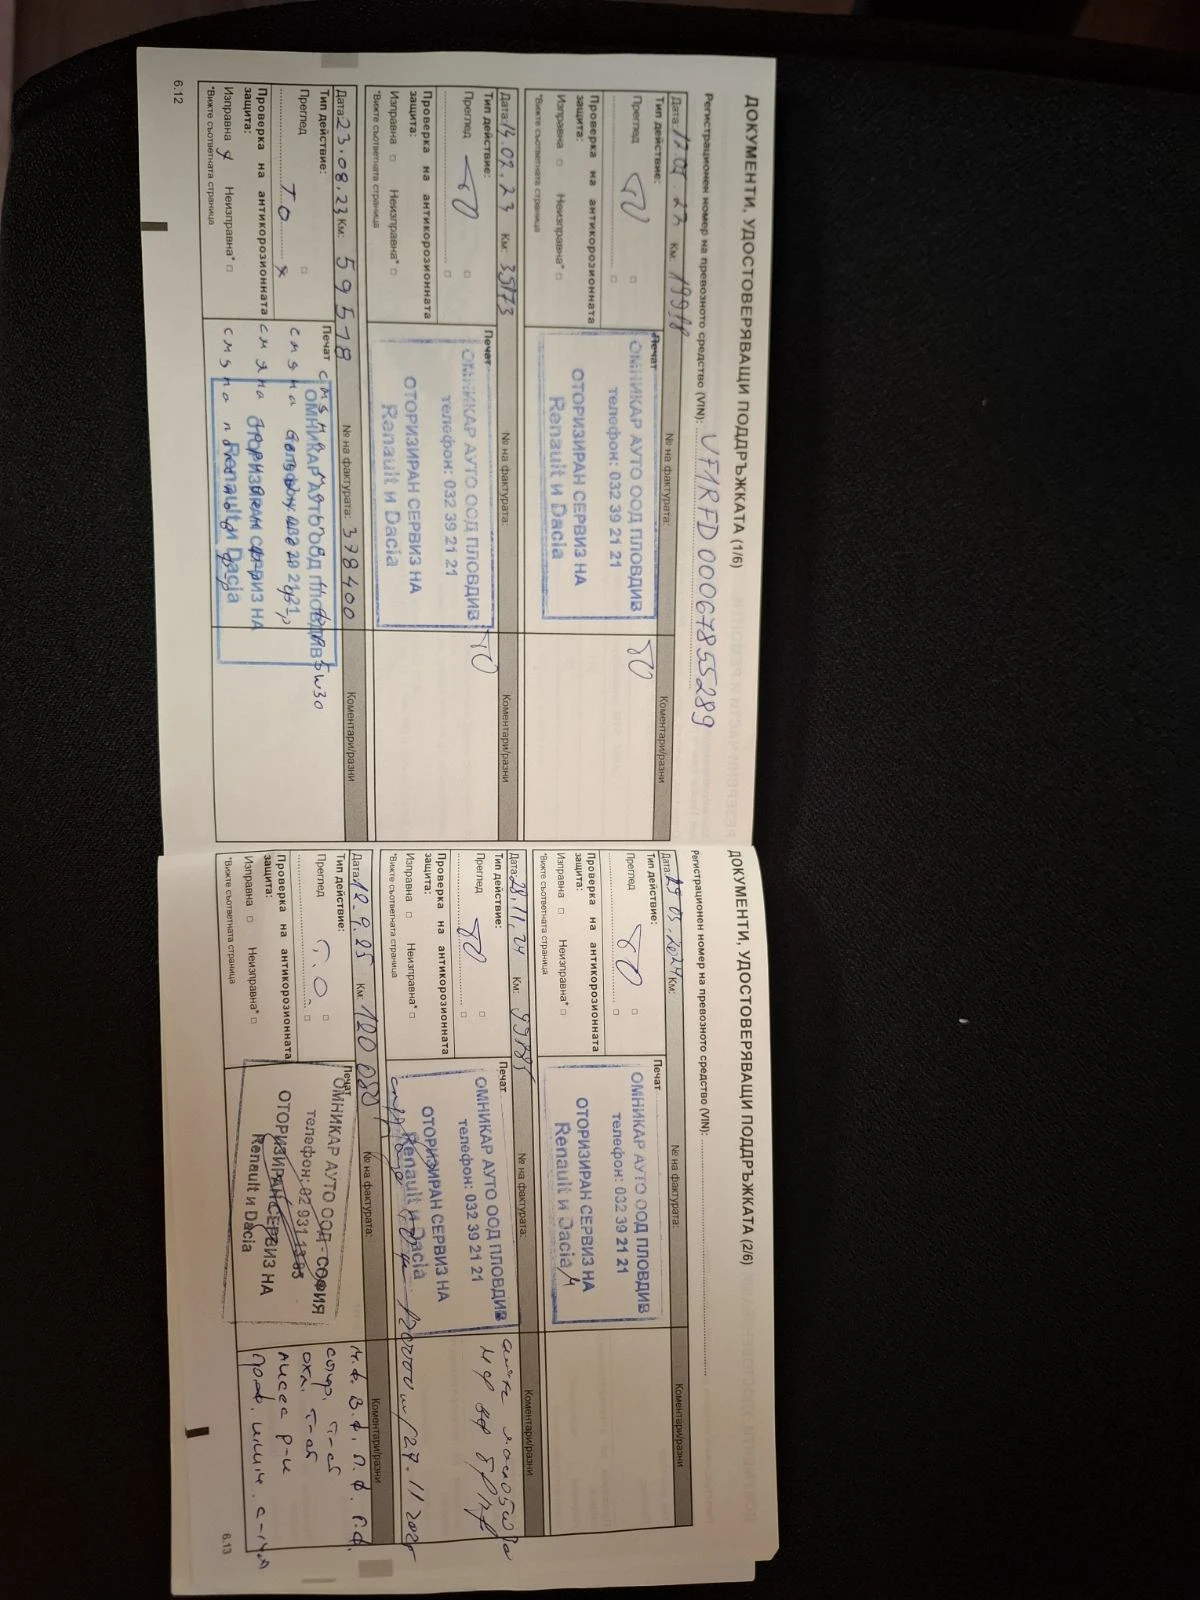 ДОКУМЕНТИ, УДОСТОВЕРЯВАЩИ ПОДДРЪЖКАТА (1/6)
Регистрационен номер на превозното средство (VIN): VF1RFD00067855289
Дата: Км: № на фактурата: Коментари/разни
Тип действие:
Преглед ТО
Проверка на антикорозионната
защита:
Изправна Неизправна*
*Вижте съответната страница
Печат
ОМНИКАР АУТО ООД ПЛОВДИВ
телефон: 032 39 21 21
ОТОРИЗИРАН СЕРВИЗ НА
Renault и Dacia
ТО
Дата: 14.02.23 Км: 35173 № на фактурата: Коментари/разни
Тип действие:
Преглед ТО
Проверка на антикорозионната
защита:
Изправна Неизправна*
*Вижте съответната страница
Печат
ОМНИКАР АУТО ООД ПЛОВДИВ
телефон: 032 39 21 21
ОТОРИЗИРАН СЕРВИЗ НА
Renault и Dacia
ТО
Дата: 23.08.23 Км: 59518 № на фактурата: 378400 Коментари/разни
Тип действие:
Преглед
Т.О. х
Проверка на антикорозионната
защита:
Изправна х Неизправна*
*Вижте съответната страница
Печат смяна 5w30
смяна
смяна
смяна
ОМНИКАР АУТО ООД ПЛОВДИВ
ОТОРИЗИРАН СЕРВИЗ НА
Renault и Dacia
6.12
ДОКУМЕНТИ, УДОСТОВЕРЯВАЩИ ПОДДРЪЖКАТА (2/6)
Регистрационен номер на превозното средство (VIN):
Дата: 29.03.2024 Км: № на фактурата: Коментари/разни
Тип действие:
Преглед ТО
Проверка на антикорозионната
защита:
Изправна Неизправна*
*Вижте съответната страница
Печат
ОМНИКАР АУТО ООД ПЛОВДИВ
телефон: 032 39 21 21
ОТОРИЗИРАН СЕРВИЗ НА
Renault и Dacia
Дата: 28.11.24 Км: № на фактурата: Коментари/разни
Тип действие:
Преглед ТО
Проверка на антикорозионната
защита:
Изправна Неизправна*
*Вижте съответната страница
Печат
ОМНИКАР АУТО ООД ПЛОВДИВ
телефон: 032 39 21 21
ОТОРИЗИРАН СЕРВИЗ НА
Renault и Dacia
Дата: 12.9.25 Км: 120 080 № на фактурата: Коментари/разни
Тип действие:
Преглед Т.О.
Проверка на антикорозионната
защита:
Изправна Неизправна*
*Вижте съответната страница
Печат
ОМНИКАР АУТО ООД - СОФИЯ
телефон: 02 931
ОТОРИЗИРАН СЕРВИЗ НА
Renault и Dacia
М.Ф. В.Ф. П.Ф. Г.Ф.
6.13